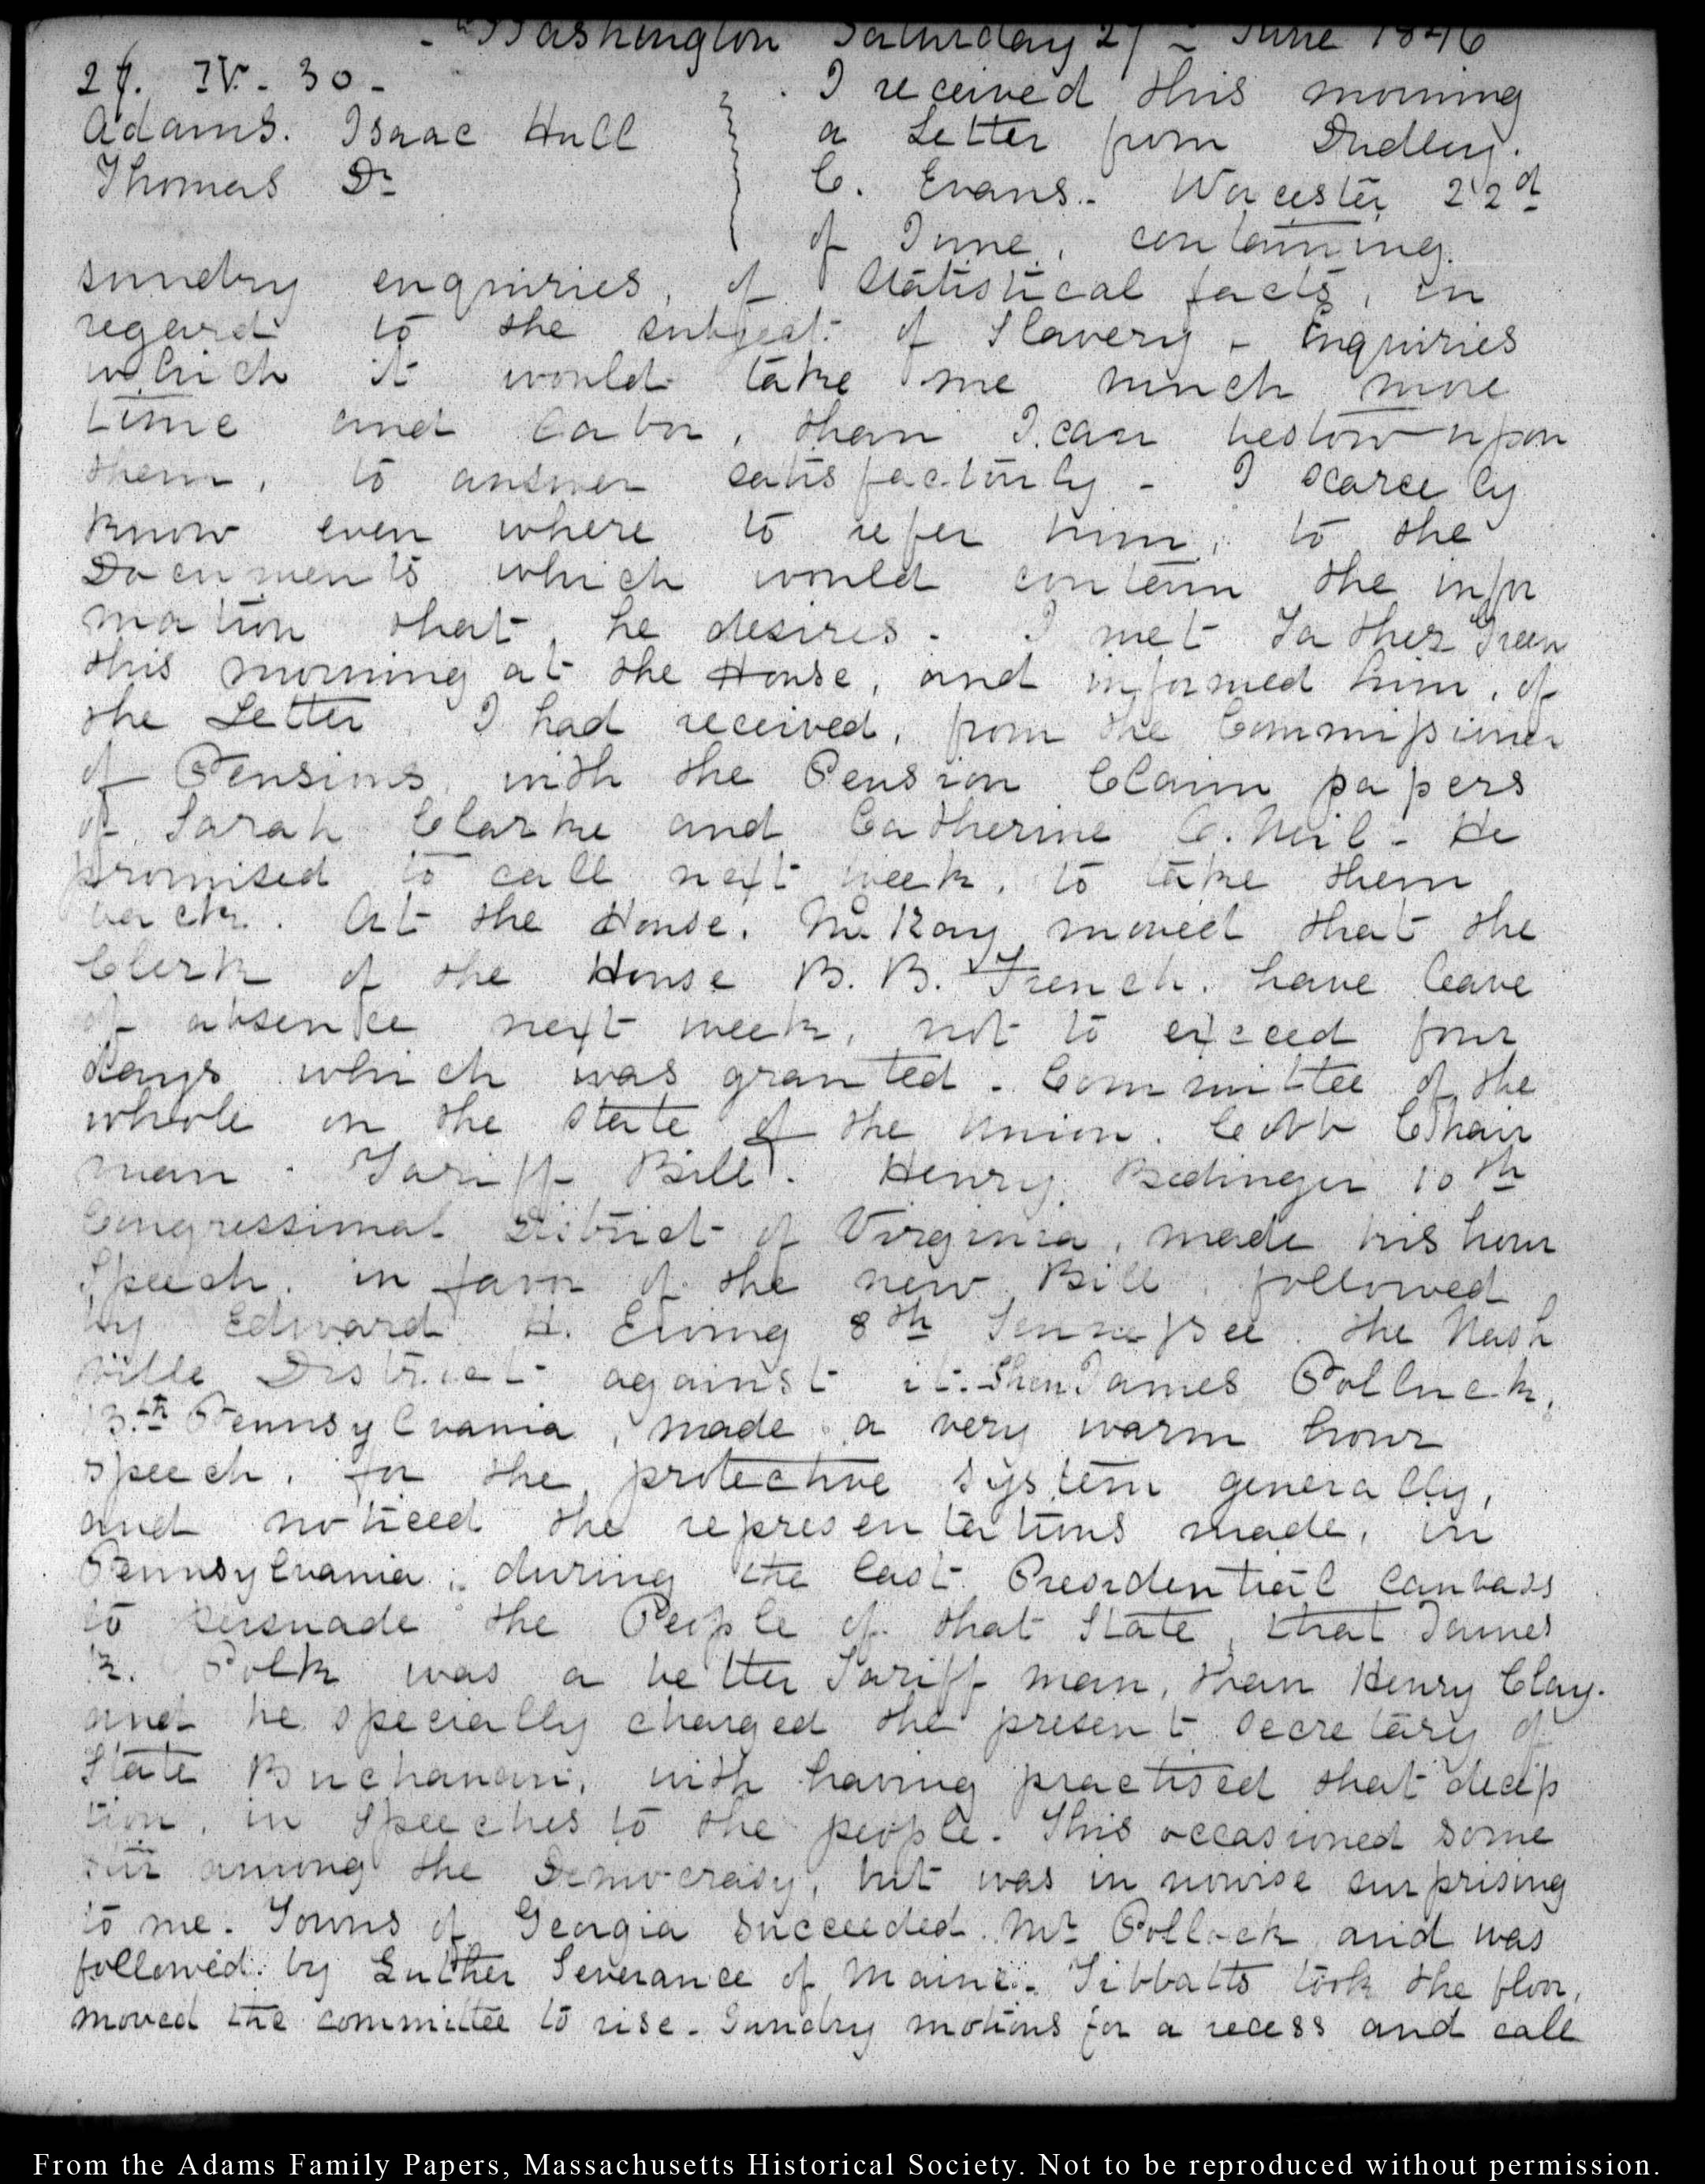 Washington Saturday 27th June 1846
27. IV. 30-
Adams. Isaac Hull
Thomas Dr
I received this morning
a Letter from Dudley.
C. Evans. Worcester 22d
of June, containing.
sundry enquiries, of Statistical facts, in
regard to the subject of Slavery - Enquiries
which it would take me much more
time and labor, than I can bestow upon
them, to answer satisfactorily - I scarcely
know even where to refer him, to the
Documents which would contain the infor
mation that, he desires. I met Father Green
this morning at the House, and informed him, of
the Letter I had received, from the Commissioner
of Pensions with the Pension Claim papers
of Sarah Clarke and Catherine C. Neil - He
promised to call next week, to take them
back. At the House. McKay moved that the
Clerk of the House B. B. French. have leave
of absence next week, not to exceed four
days which was granted - Committee of the
whole on the state of the Union. Cobb Chair
man. Tariff Bill. Henry Bedinger 10th
Congressional District of Virginia, made his hour
Speech, in favor of the new Bill, followed
by Edward H. Ewing 8th Tennessee the Nash
ville District against it. Then James Pollock,
13.th Pennsylvania, made a very warm hour
speech, for the protective system generally,
and noticed the representations made, in
Pennsylvania, during the last Presidential canvass
to persuade the People of that State, that James
K. Polk was a better Tariff man, than Henry Clay.
and he specially charged the present Secretary of
State Buchanan, with having practised that decep
tion, in Speeches to the people. This occasioned some
stir among the Democracy, but was in nowise surprising
to me. Towns of Georgia succeeded Mr Pollock and was
followed by Luther Severance of Maine. Tibbatts took the floor,
moved the committee to rise - Sundry motions for a recess and call
From the Adams Family Papers, Massachusetts Historical Society. Not to be reproduced without permission.